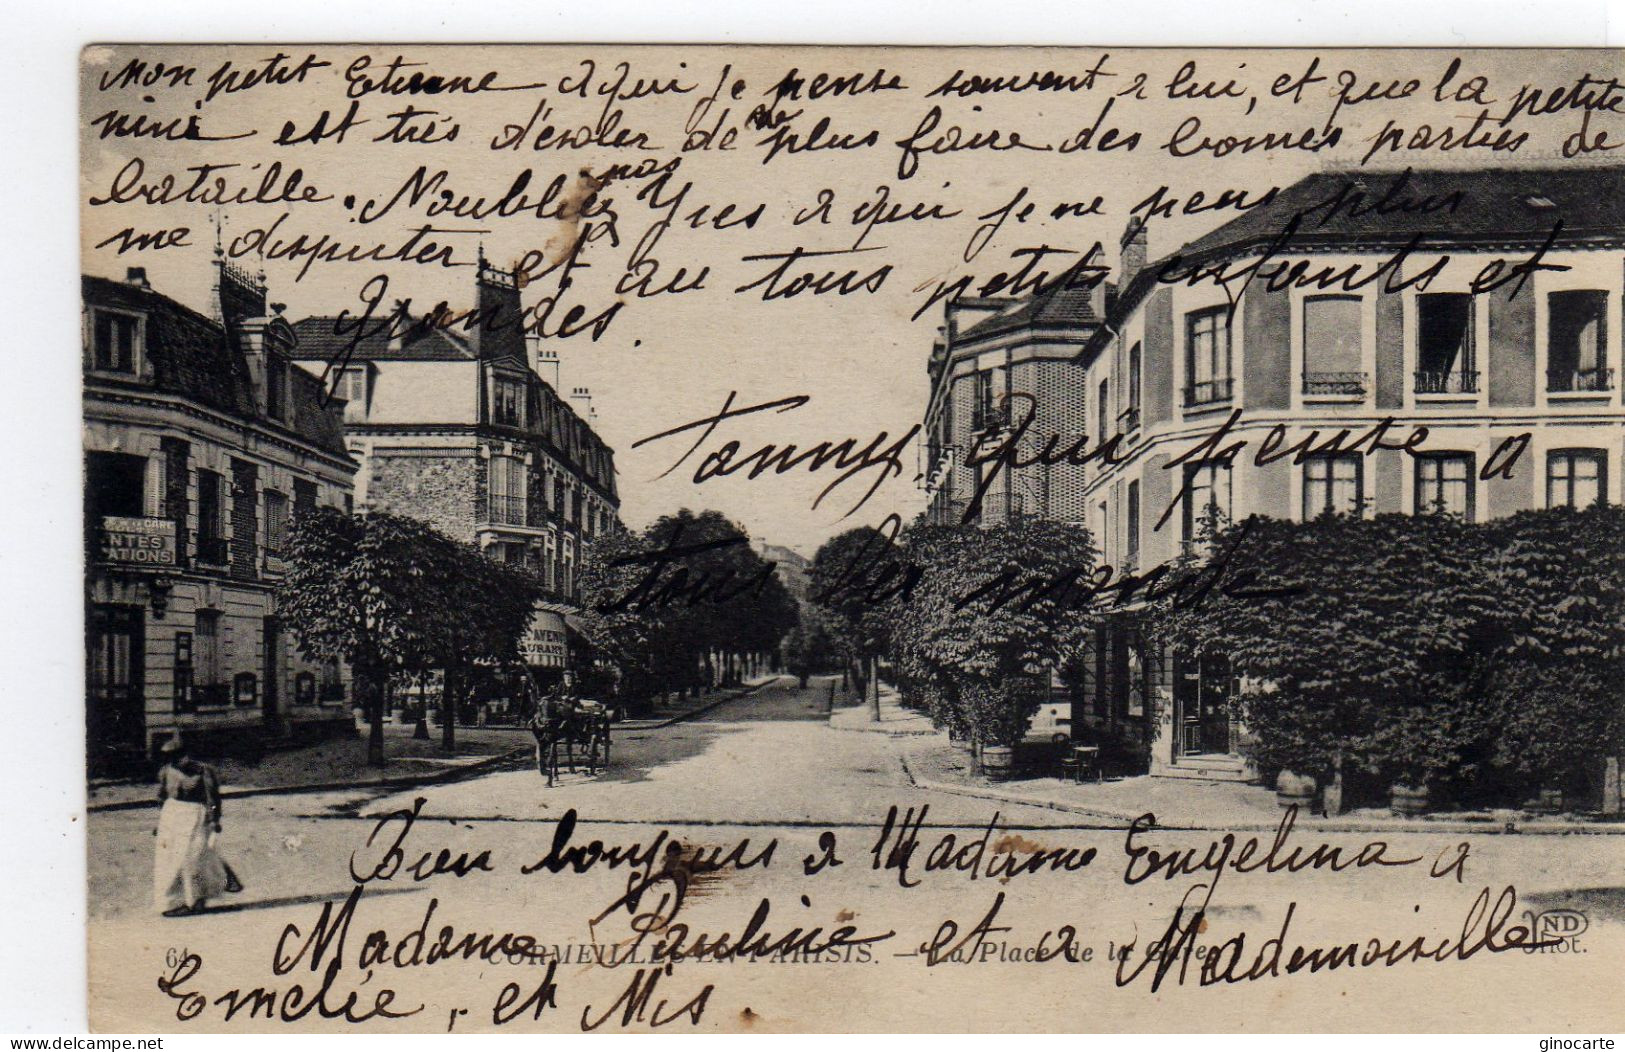 Mon petit Etienne a qui je pense souvent a lui, et que la petite
nini est très désoler de ne plus faire des bonnes parties de
bataille. Noubliez pas Yves a qui je ne peus plus
me disputer et au tous petits enfants et
grandes.
Tonny qui pense a
tous les monde
GARE
NTES
ATIONS
AVEN
URANT
Bien bonjours a Madame Engelina a
Madame Pauline et a Mademoiselle
64 CORMEILLES-EN-PARISIS. — La Place de la Gare
ND Phot.
Emelie, et Mis.
delcampe.net
ginocarte